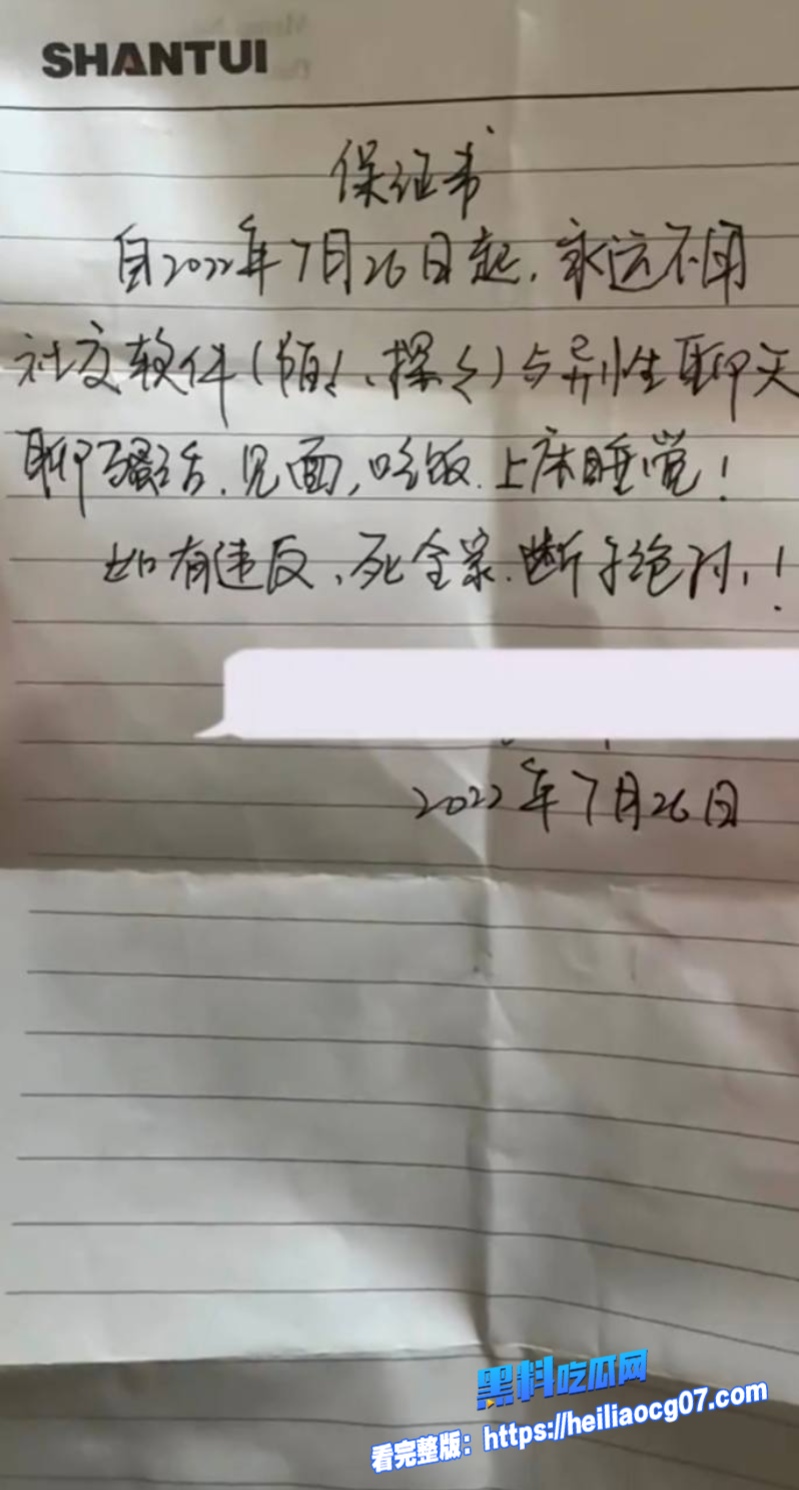 SHANTUI
保证书
自2022年7月26日起,永远不用
社交软件(陌々、探々)与异性聊天
聊骚话,见面,吃饭,上床睡觉!
如有违反、死全家、断子绝孙!
2022年7月26日
黑料吃瓜网
看完整版:https://heiliaocg07.com